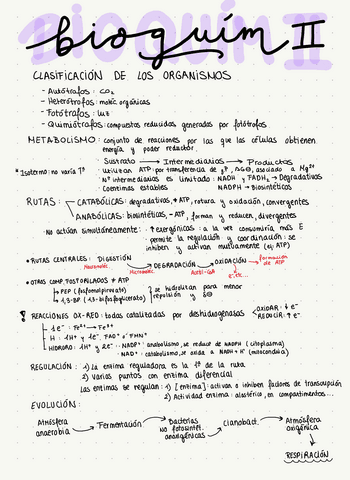 BIOQUÍM II
bioquím II
CLASIFICACIÓN DE LOS ORGANISMOS
- Autótrofos: CO2
- Heterótrofos: moléc orgánicas
- Fotótrofos: luz
- Quimiótrofos: compuestos reducidos generados por fotótrofos
METABOLISMO: conjunto de reacciones por las que las células obtienen
energía y poder reductor.
Sustrato → Intermediarios → Productos
* Isotermo: no varía Tª
- Utilizan ATP por transferencia de gº P, ΔG⊖, asociado a Mg2+
- Nº intermediarios es limitado: NADH y FADH2 → Degradativas
- Coenzimas estables NADPH → biosintéticos
RUTAS: CATABÓLICAS: degradativas, + ATP, rotura y oxidación, convergentes
ANABÓLICAS: biosintéticos, - ATP, forman y reducen, divergentes
· No actúan simultáneamente: · exergónicas: a la vez consumiría más E
· permite la regulación y coordinación: se
inhiben y activan mutuamente (ej ATP)
* RUTAS CENTRALES: DIGESTIÓN → DEGRADACIÓN → OXIDACIÓN → formación de ATP
Acetil-CoA
* OTRAS COMP. FOSFORILADOS ≠ ATP
PEP (fosfoenolpiruvato)
1,3-BP (1,3-bifosfoglicerato)
se hidrolizan para menor
repulsión y δ⊖
! REACCIONES OX-RED: todas catalizadas por deshidrogenasas
OXIDAR: ↓ e-
REDUCIR: ↑ e-
1e-: Fe2+ → Fe3+
H: 1H+ y 1e-, FAD+ o FMN+
HIDRURO: 1H+ y 2e- · NADP+: anabolismo, se reduce de NADPH (citoplasma)
· NAD+: catabolismo, se oxida a NADH + H+ (mitocondria)
REGULACIÓN: 1) La enzima reguladora es la 1ª de la ruta
2) Varios puntos con enzima diferencial
Las enzimas se regulan: 1) [enzima]: activan o inhiben factores de transcripción
2) Actividad enzima: alostérico, en compartimentos...
EVOLUCIÓN:
Atmósfera anaerobia → Fermentación → Bacterias no fotosintét. anoxigénicas → Cianobact. → Atmósfera oxigénica
RESPIRACIÓN